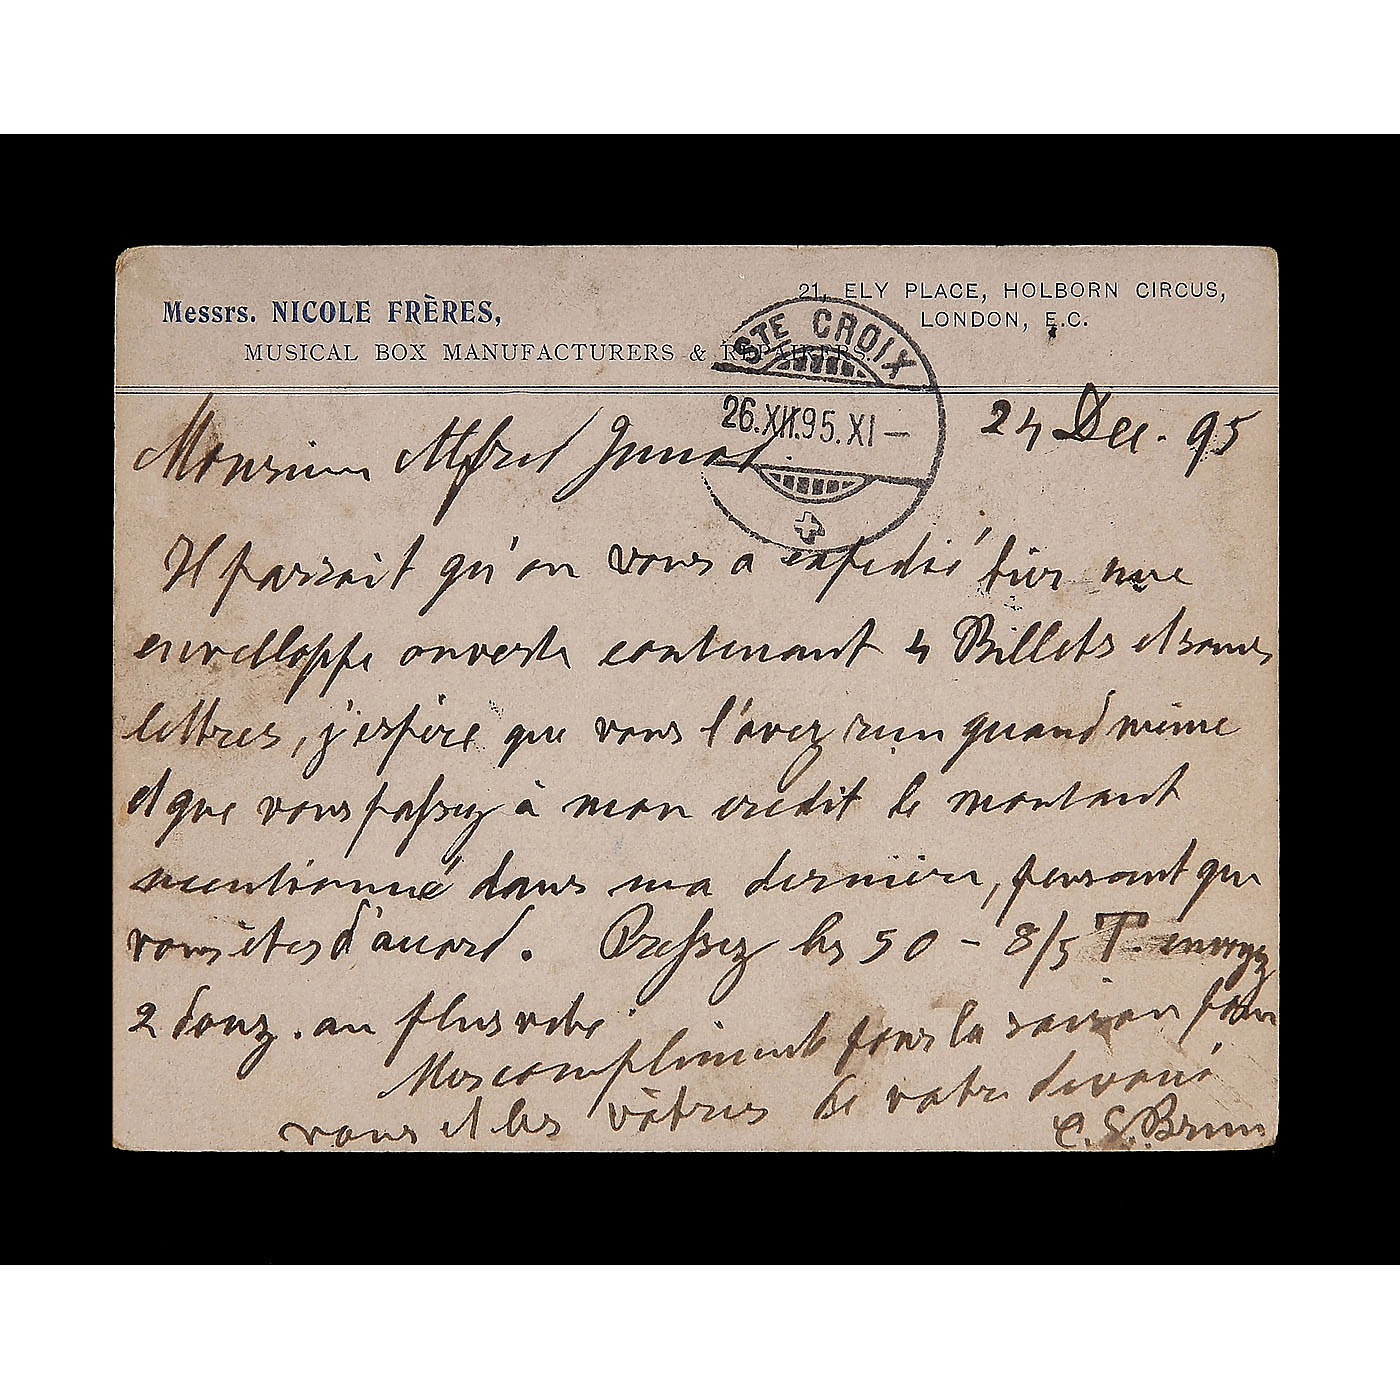 Messrs. NICOLE FRÈRES,
MUSICAL BOX MANUFACTURERS & REPAIRERS.
21, ELY PLACE, HOLBORN CIRCUS,
LONDON, E.C.
STE CROIX
26.XII.95.XI–
24 Dec. 95
Monsieur Alfred Junod
Il parrait qu'on vous a expedié hier une
envelloppe ouverte contenant 4 Billets et sans
lettres, j'espère que vous l'avez reçu quand même
et que vous passez à mon credit le montant
mentionné dans ma dernière, pensant que
vous êtes d'accord. Pressez les 50 – 8/5 T. envoyez
2 douz. au plus vite
Mes compliments pour la saison pour
vous et les vôtres de votre devoué
C. E. Brun